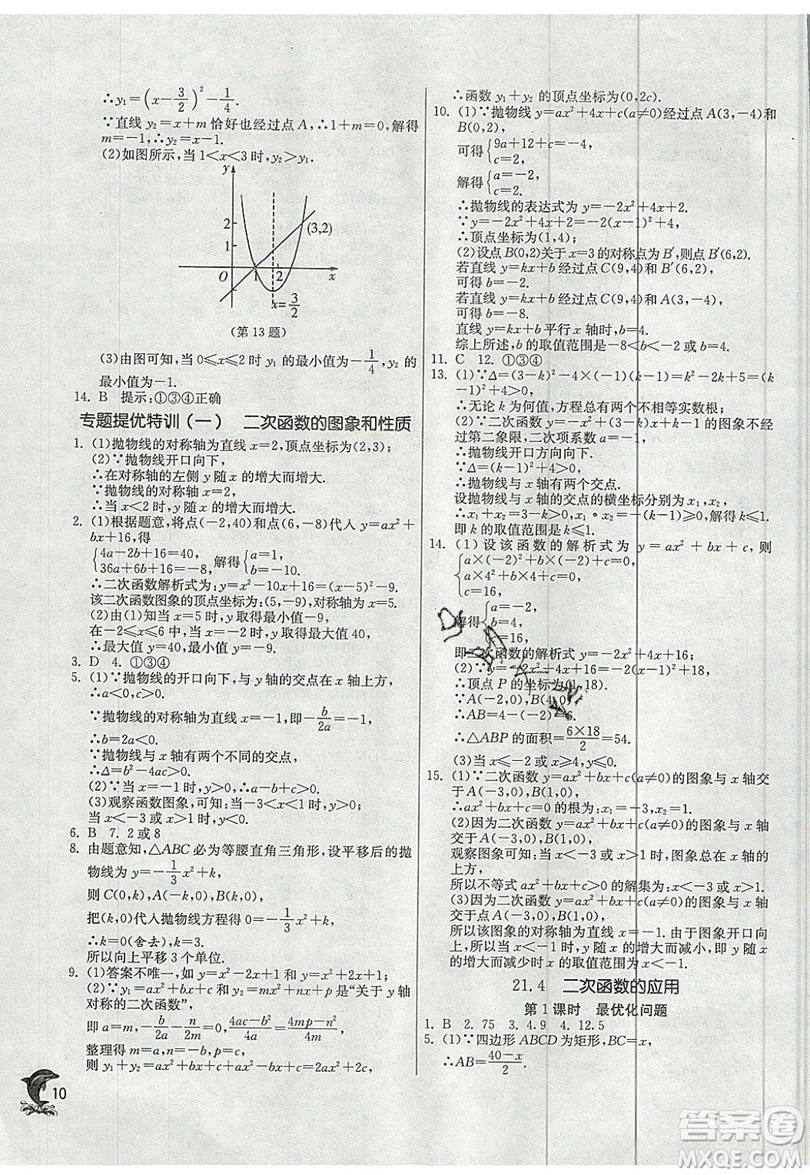 ∴y₁=(x−3/2)²−1/4.
∵直线 y₂=x+m 恰好也经过点 A,∴1+m=0,解得
m=−1,∴y₂=x−1.
(2)如图所示,当 1<x<3 时,y₂>y₁.
y
2
1
(3,2)
O
1
2
x
x=3/2
(第 13 题)
(3)由图可知,当 0≤x≤2 时 y₁ 的最小值为−1/4,y₂ 的
最小值为−1.
14. B 提示:①③④正确
专题提优特训(一) 二次函数的图象和性质
1. (1)抛物线的对称轴为直线 x=2,顶点坐标为(2,3);
(2)∵抛物线开口向下,
∴在对称轴的左侧 y 随 x 的增大而增大.
∵抛物线的对称轴为 x=2,
∴当 x<2 时,y 随 x 的增大而增大.
2. (1)根据题意,将点(−2,40)和点(6,−8)代入 y=ax²+
bx+16,得
{4a−2b+16=40, 36a+6b+16=−8, 解得{a=1, b=−10.
∴二次函数解析式为 y=x²−10x+16=(x−5)²−9.
该二次函数图象的顶点坐标为(5,−9),对称轴为 x=5.
(2)由(1)知当 x=5 时,y 取得最小值−9,
在−2≤x≤6 中,当 x=−2 时,y 取得最大值 40,
∴最大值 40,最小值−9.
3. D 4. ①③④
5. (1)∵抛物线的开口向下,与 y 轴的交点在 x 轴上方,
∴a<0,c>0.
∵抛物线的对称轴为直线 x=−1,即−b/2a=−1,
∴b=2a<0.
∵抛物线与 x 轴有两个不同的交点,
∴Δ=b²−4ac>0.
(2)∵b=2a,∴2a−b=0.
(3)观察函数图象,可知:当−3<x<1 时,y>0;当 x<−3
或 x>1 时,y<0.
6. B 7. 2或8
8. 由题意知,△ABC 必为等腰直角三角形,设平移后的抛
物线为 y=−1/3x²+k,
则 C(0,k),A(−k,0),B(k,0),
把(k,0)代入抛物线方程得 0=−1/3x²+k,
∴k=0(舍去),k=3.
所以向上平移 3 个单位.
9. (1)答案不唯一,如 y=x²−2x+1 和 y=x²+2x+1
(2)∵y₁=ax²+bx+c 和 y₂=mx²+nx+p 是“关于 y 轴
对称的二次函数”,
即 a=m,−b/2a=n/2m=0,4ac−b²/4a=4mp−n²/4m,
整理得 m=a,n=−b,p=c,
则 y₁+y₂=ax²+bx+c+ax²−bx+c=2ax²+2c,
∴函数 y₁+y₂ 的顶点坐标为(0,2c).
10. (1)∵抛物线 y=ax²+4x+c(a≠0)经过点 A(3,−4)和
B(0,2),
可得{9a+12+c=−4, c=2,
解得{a=−2, c=2.
∴抛物线的表达式为 y=−2x²+4x+2.
∵y=−2x²+4x+2=−2(x−1)²+4,
∴顶点坐标为(1,4);
(2)设点 B(0,2)关于 x=3 的对称点为 B′,则点 B′(6,2).
若直线 y=kx+b 经过点 C(9,4)和 B′(6,2),
可得 b=−2.
若直线 y=kx+b 经过点 C(9,4)和 A(3,−4),
可得 b=−8.
直线 y=kx+b 平行 x 轴时,b=4.
综上所述,b 的取值范围为
11. C 12. ①③④
∴无论 k 为何值,方程总有两个不相等实数根;
第二象限,二次项系数 a=1,
∴抛物线开口方向向上.
∴抛物线与 x 轴有两个交点.
设抛物线与 x 轴的交点的横坐标分别为 x₁,x₂,
∴x₁+x₂=3−k>0,x₁•x₂=1−k≥0,解得 k≤1.
即 k 的取值范围是 k≤1.
14. (1)设该函数的解析式为 y=ax²+bx+c,则
{a×(−2)²+b×(−2)+c=0, a×4²+b×4+c=0, c=16,
解得{a=−2, b=4, c=16,
即二次函数的解析式为 y=−2x²+4x+16;
(2)∵y=−2x²+4x+16=−2(x−1)²+18,
∴顶点 P 的坐标为(1,18).
∵A(−2,0),B(4,0),
∴AB=4−(−2)=6.
∴△ABP 的面积=6×18/2=54.
(3)当 x≤−2 或 x≥4 时,y≤0.
15. (1)∵二次函数 y=ax²+bx+c(a≠0)的图象与 x 轴交
于 A(−3,0),B(1,0),
∴ax²+bx+c=0 的根为:x₁=−3,x₂=1.
(2)因为二次函数 y=ax²+bx+c(a≠0)的图象与 x 轴交
于点 A(−3,0),B(1,0),
观察图象可知:当 x<−3 或 x>1 时,图象总在 x 轴的
上方,
所以不等式 ax²+bx+c>0 的解集为 x<−3 或 x>1.
(3)因为二次函数 y=ax²+bx+c(a≠0)的图象与 x 轴
交于点 A(−3,0),B(1,0),
所以该图象的对称轴为直线 x=−1. 由于图象开口向
上,故当 x<−1 时,y 随 x 的增大而减小,即 y 随 x 的增
大而减小时 x 的取值范围为 x<−1.
21.4 二次函数的应用
第 1 课时 最优化问题
1. B 2. 75 3. 4.9 4. 12.5
5. (1)∵四边形 ABCD 为矩形,BC=x,
∴AB=40−x/2.
10
答案圈
MXQE.COM